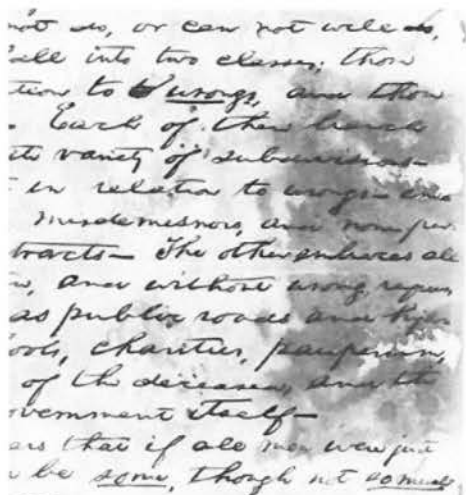 not do, or can not well do,
fall into two classes; those
tion to wrongs, and those
. Each of these branch
ite variety of subdivisions—
t in relation to wrongs—
misdemeanors, and non-per
tracts— The other embraces all
, and without wrong, requires
as public roads and high
ools, charities, pauperism,
of the deceased, and the
overnment itself—
ears that if all men were just
be some, though not so much